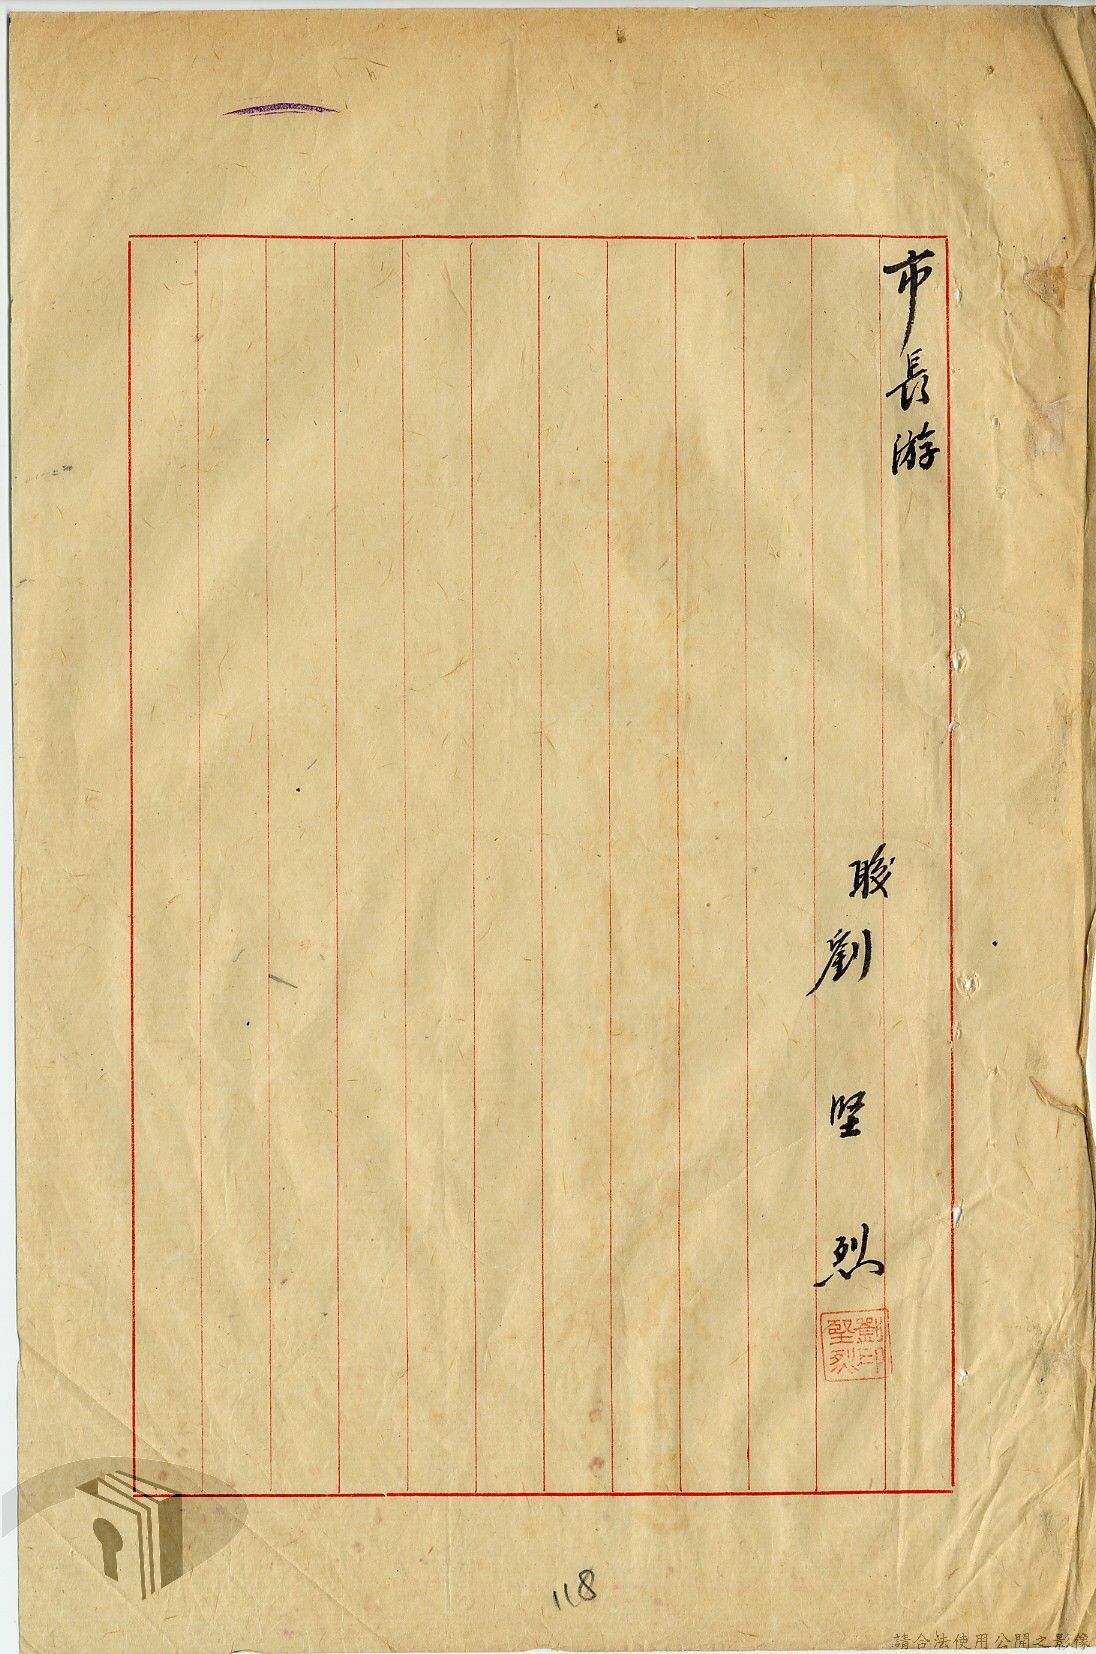 市長游
職劉堅烈
劉印堅烈
118
請合法使用公開之影像